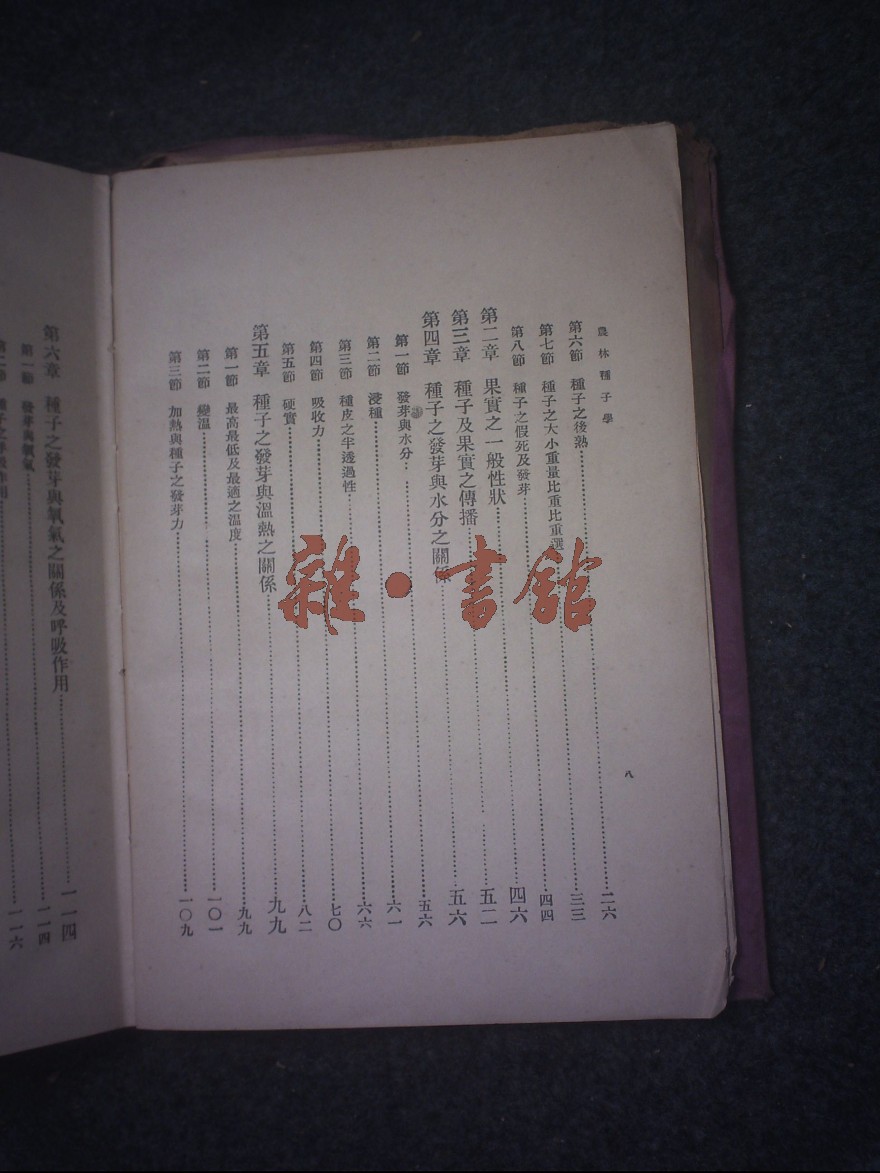 農林種子學
八
第六節 種子之後熟……二六
第七節 種子之大小重量比重比重選……三三
第八節 種子之假死及發芽……四四
第二章 果實之一般性狀……四六
第三章 種子及果實之傳播……五二
第四章 種子之發芽與水分之關係……五六
第一節 發芽與水分……五六
第二節 浸種……六一
第三節 種皮之半透過性……六六
第四節 吸收力……七〇
第五節 硬實……八二
第五章 種子之發芽與溫熱之關係……九九
第一節 最高最低及最適之溫度……九九
第二節 變溫……一〇一
第三節 加熱與種子之發芽力……一〇九
第六章 種子之發芽與氧氣之關係及呼吸作用……一一四
第一節 發芽與氧氣……一一四
第二節 種子之呼吸作用……一一六
雜·書館